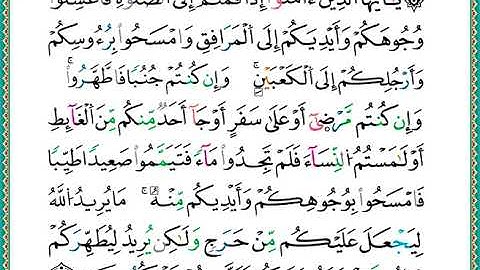 يَٰٓأَيُّهَا ٱلَّذِينَ ءَامَنُوٓا۟ إِذَا قُمْتُمْ إِلَى ٱلصَّلَوٰةِ فَٱغْسِلُوا۟
وُجُوهَكُمْ وَأَيْدِيَكُمْ إِلَى ٱلْمَرَافِقِ وَٱمْسَحُوا۟ بِرُءُوسِكُمْ
وَأَرْجُلِكُمْ إِلَى ٱلْكَعْبَيْنِ ۚ وَإِن كُنتُمْ جُنُبًا فَٱطَّهَّرُوا۟ ۚ
وَإِن كُنتُم مَّرْضَىٰٓ أَوْ عَلَىٰ سَفَرٍ أَوْ جَآءَ احَدٌ مِّنكُم مِّنَ ٱلْغَآئِطِ
أَوْ لَٰمَسْتُمُ ٱلنِّسَآءَ فَلَمْ تَجِدُوا۟ مَآءً فَتَيَمَّمُوا۟ صَعِيدًا طَيِّبًا
فَٱمْسَحُوا۟ بِوُجُوهِكُمْ وَأَيْدِيكُم مِّنْهُ ۚ مَا يُرِيدُ ٱللَّهُ
لِيَجْعَلَ عَلَيْكُم مِّنْ حَرَجٍ وَلَٰكِن يُرِيدُ لِيُطَهِّرَكُمْ